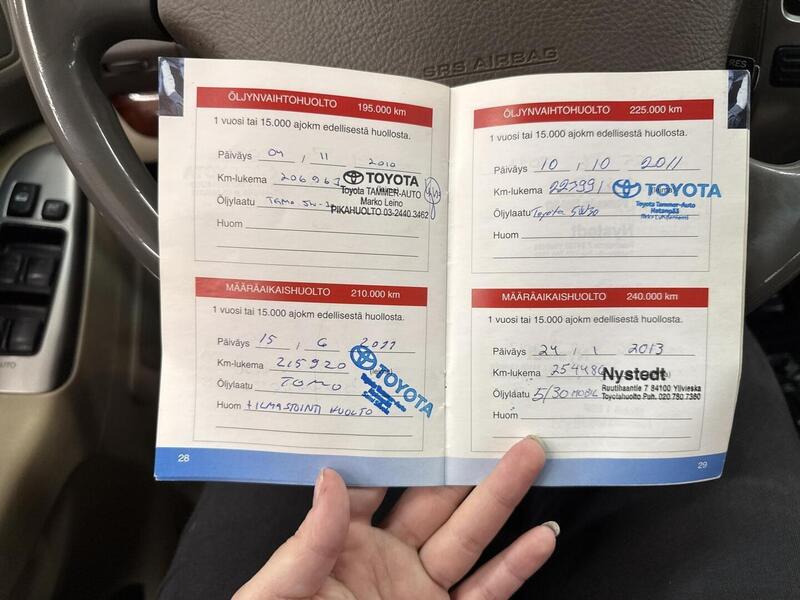 SRS AIRBAG
RES
AUTO
ÖLJYNVAIHTOHUOLTO 195.000 km
1 vuosi tai 15.000 ajokm edellisestä huollosta.
Päiväys 04 / 11 2010
Km-lukema 206963
TOYOTA
Toyota TAMMER-AUTO
Öljylaatu
Marko Leino
PIKAHUOLTO 03-2440 3462
Huom
MÄÄRÄAIKAISHUOLTO 210.000 km
1 vuosi tai 15.000 ajokm edellisestä huollosta.
Päiväys 15 / 6 / 2011
Km-lukema 215920
TOYOTA
Öljylaatu TOMO
Huom + ILMASTOINTI HUOLTO
28
ÖLJYNVAIHTOHUOLTO 225.000 km
1 vuosi tai 15.000 ajokm edellisestä huollosta.
Päiväys 10 / 10 2011
Km-lukema 223991
TOYOTA
Öljylaatu Toyota 5W30
Toyota Tammer-Auto
Huom
MÄÄRÄAIKAISHUOLTO 240.000 km
1 vuosi tai 15.000 ajokm edellisestä huollosta.
Päiväys 24 / 1 2013
Km-lukema 254486
Nystedt
Öljylaatu 5/30 MOBIL
Ruutihaantie 7 84100 Ylivieska
Toyotahuolto Puh. 020.780.7360
Huom
29